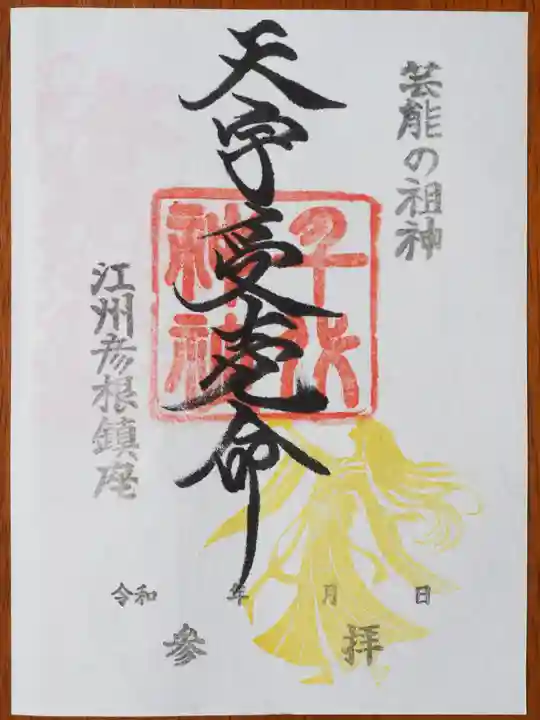 芸能の祖神
天宇受売命
千代
神社
江州彦根鎮座
令和 年 月 日
参 拝